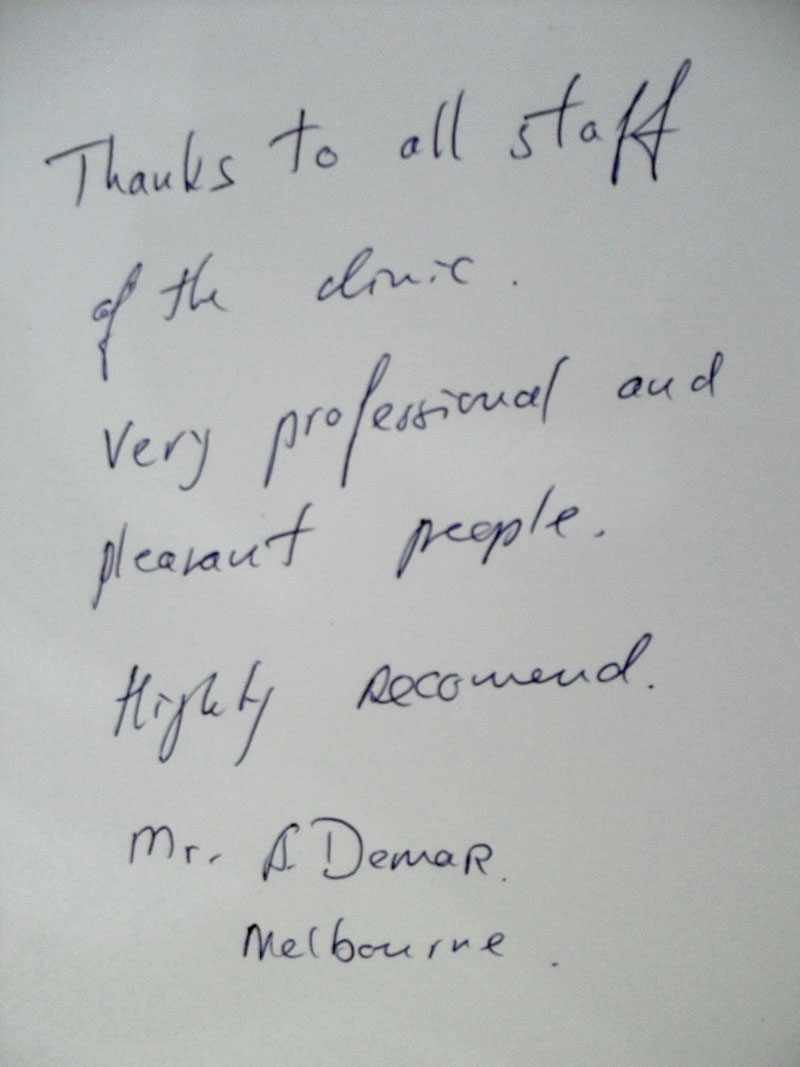 Thanks to all staff
of the clinic.
Very professional and
pleasant people.
Highly recomend.
Mr. Demar.
Melbourne.